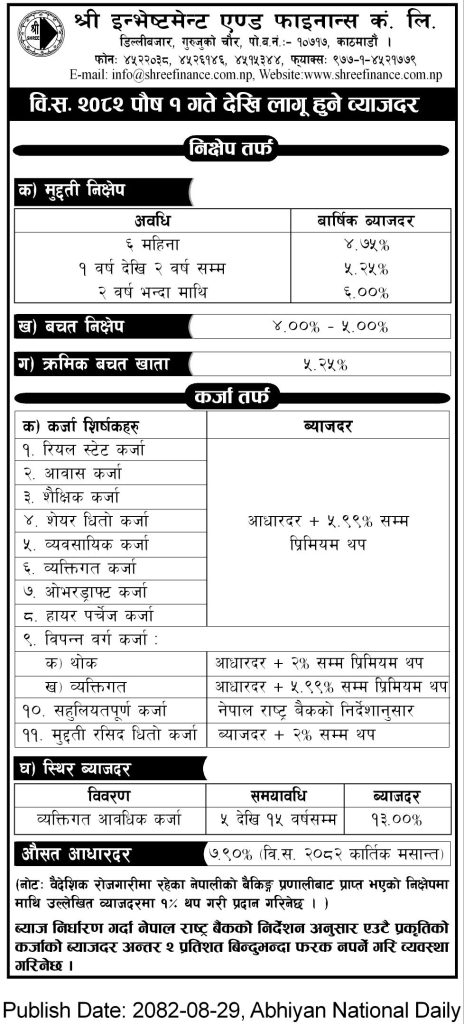 श्री इन्भेष्टमेन्ट एण्ड फाइनान्स कं. लि.
SHREE
डिल्लीबजार, गुरुजुको चौर, पो.ब.नं.:- १०७१७, काठमाडौं ।
फोनः ४५२२०३८, ४५२६१४६, ४५१५३४४, फ्याक्सः ९७७-१-४५२१७७९
E-mail: info@shreefinance.com.np, Website:www.shreefinance.com.np
वि.स. २०८२ पौष १ गते देखि लागू हुने ब्याजदर
निक्षेप तर्फ
क) मुद्दती निक्षेप
अवधि बार्षिक ब्याजदर
६ महिना ४.७५%
१ वर्ष देखि २ वर्ष सम्म ५.२५%
२ वर्ष भन्दा माथि ६.००%
ख) बचत निक्षेप ४.००% - ५.००%
ग) क्रमिक बचत खाता ५.२५%
कर्जा तर्फ
क) कर्जा शिर्षकहरु ब्याजदर
१. रियल स्टेट कर्जा
२. आवास कर्जा
३. शैक्षिक कर्जा
४. शेयर धितो कर्जा
५. व्यवसायिक कर्जा
६. व्यक्तिगत कर्जा
७. ओभरड्राफ्ट कर्जा
८. हायर पर्चेज कर्जा
आधारदर + ५.९९% सम्म
प्रिमियम थप
९. विपन्न वर्ग कर्जा :
क) थोक आधारदर + २% सम्म प्रिमियम थप
ख) व्यक्तिगत आधारदर + ५.९९% सम्म प्रिमियम थप
१०. सहुलियतपूर्ण कर्जा नेपाल राष्ट्र बैकको निर्देशानुसार
११. मुद्दती रसिद धितो कर्जा ब्याजदर + २% सम्म थप
घ) स्थिर ब्याजदर
विवरण समयावधि ब्याजदर
व्यक्तिगत आवधिक कर्जा ५ देखि १५ वर्षसम्म १३.००%
औसत आधारदर ७.९०% (वि.स. २०८२ कार्तिक मसान्त)
(नोटः वैदेशिक रोजगारीमा रहेका नेपालीको बैकिङ्ग प्रणालीबाट प्राप्त भएको निक्षेपमा
माथि उल्लेखित ब्याजदरमा १% थप गरी प्रदान गरिनेछ । )
ब्याज निर्धारण गर्दा नेपाल राष्ट्र बैकको निर्देशन अनुसार एउटै प्रकृतिको
कर्जाको ब्याजदर अन्तर २ प्रतिशत बिन्दुभन्दा फरक नपर्ने गरि व्यवस्था
गरिनेछ ।
Publish Date: 2082-08-29, Abhiyan National Daily